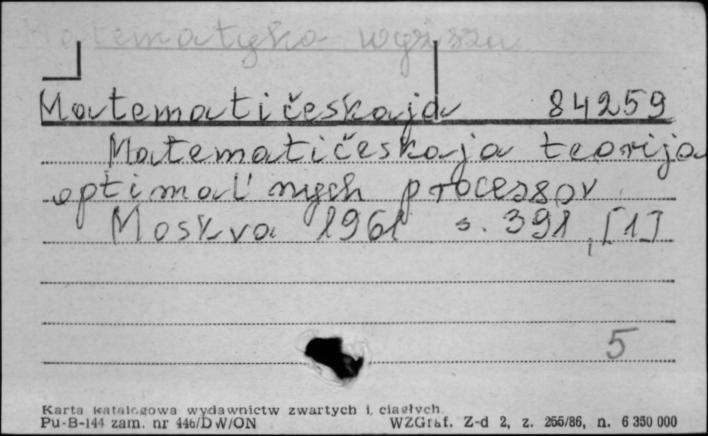 Matematyka wyższa
Matematičeskaja 84259
Matematičeskaja teorija
optimal'nych processov
Moskva 1961 s. 391, [1]
5
Karta katalogowa wydawnictw zwartych i ciągłych.
Pu-B-144 zam. nr 446/DW/ON WZGraf. Z-d 2, z. 266/86, n. 6 350 000